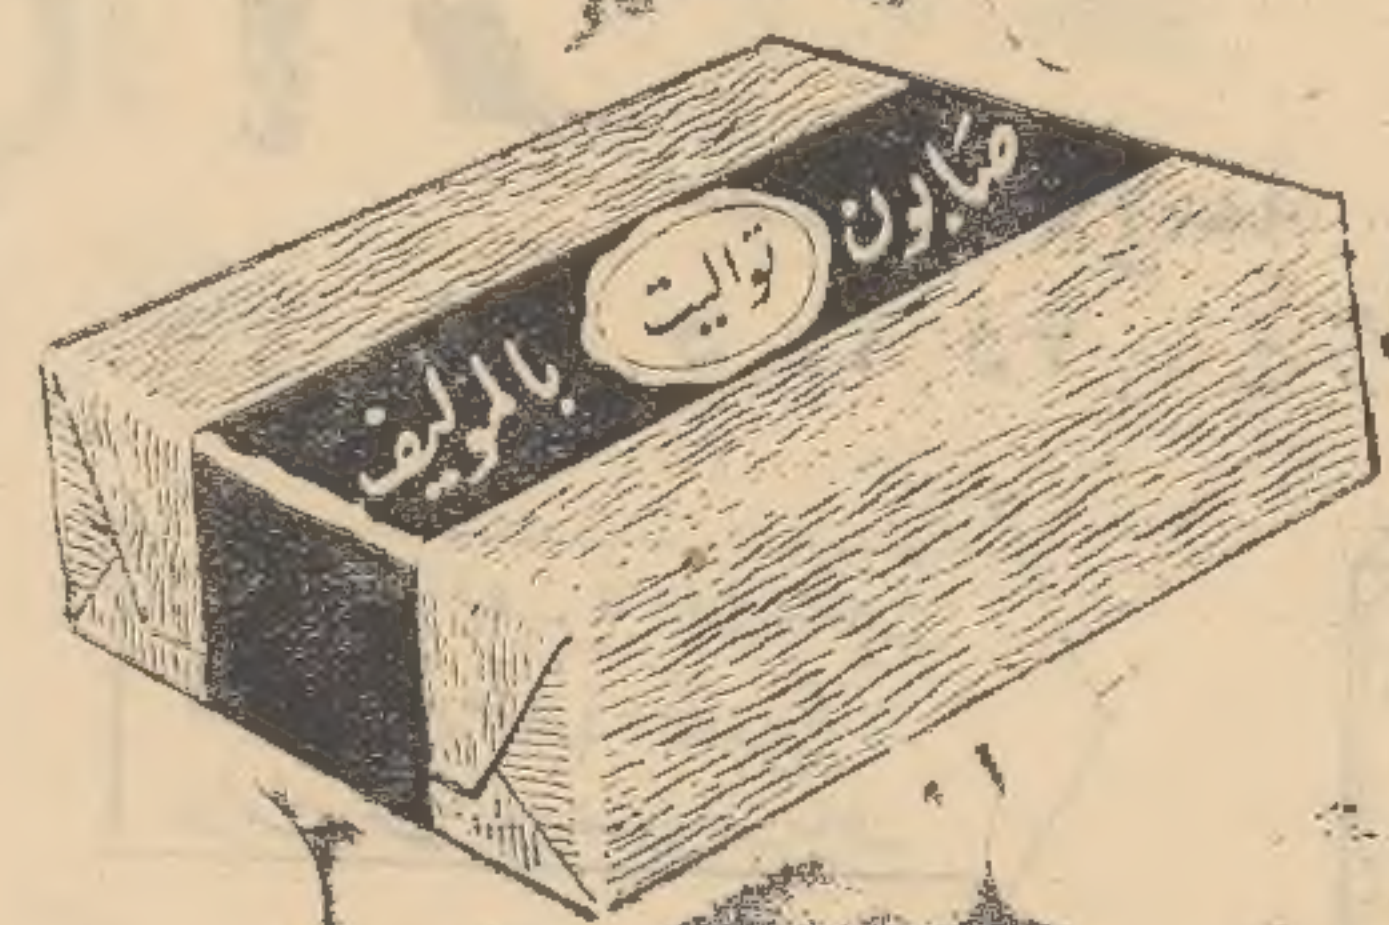 صابون
تواليت
بالموليف